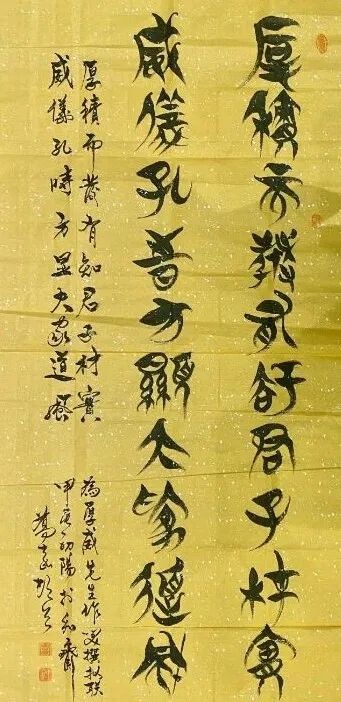 厚積而發有君子材實
威儀孔時方顯大家道
厚積而發有知君子材實
威儀孔時方显大家道
為厚威先生作撰联
甲辰初陽於齋